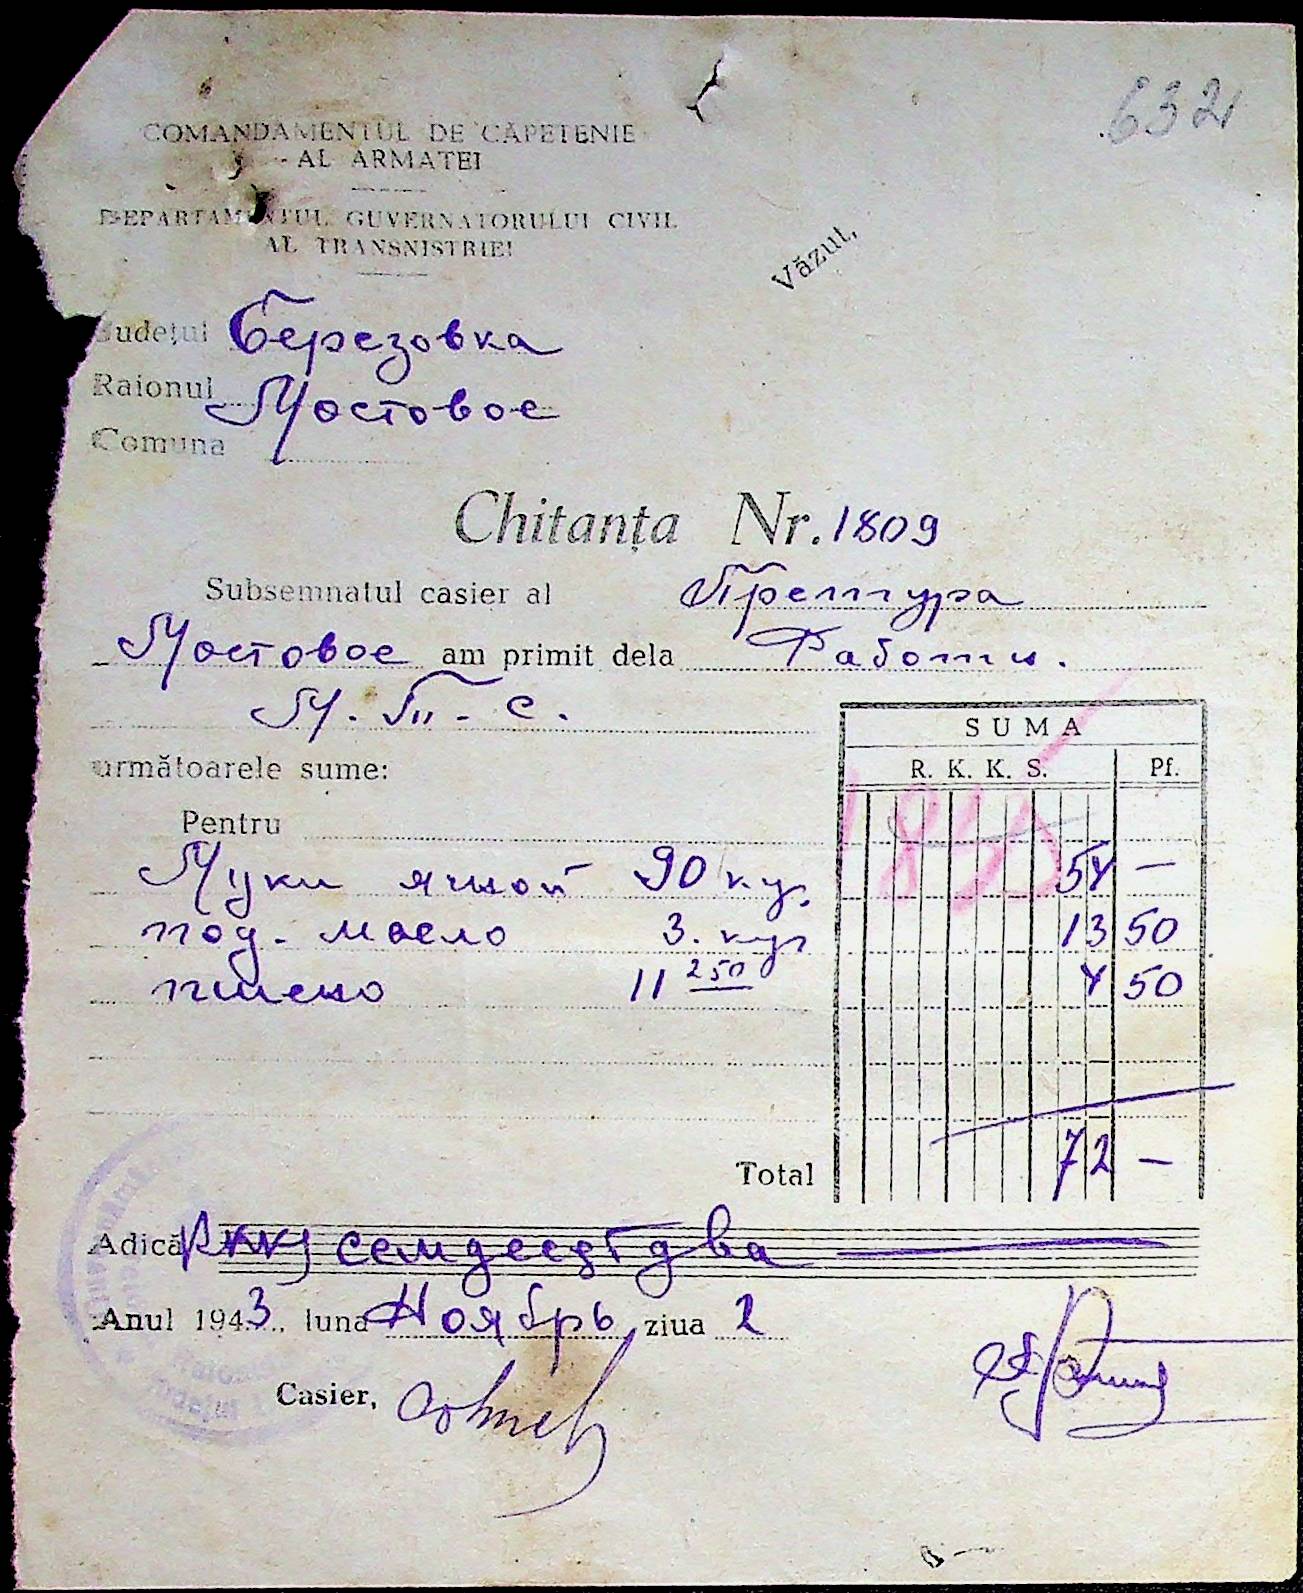 632
COMANDAMENTUL DE CĂPETENIE
AL ARMATEI
DEPARTAMENTUL GUVERNATORULUI CIVIL
AL TRANSNISTRIEI
Văzut,
Județul Березовка
Raionul Мостовое
Comuna
Chitanța Nr. 1809
Subsemnatul casier al Претура
Мостовое am primit dela Работн.
М. П. С.
următoarele sume:
SUMA
R. K. K. S. Pf.
Pentru
Муки ячной 90 кгр. 54 —
под. масло 3. кгр 13 50
пшено 11 250 4 50
Total 72 —
Adică семдесят два
Anul 1943 luna Ноябрь ziua 2
Casier,